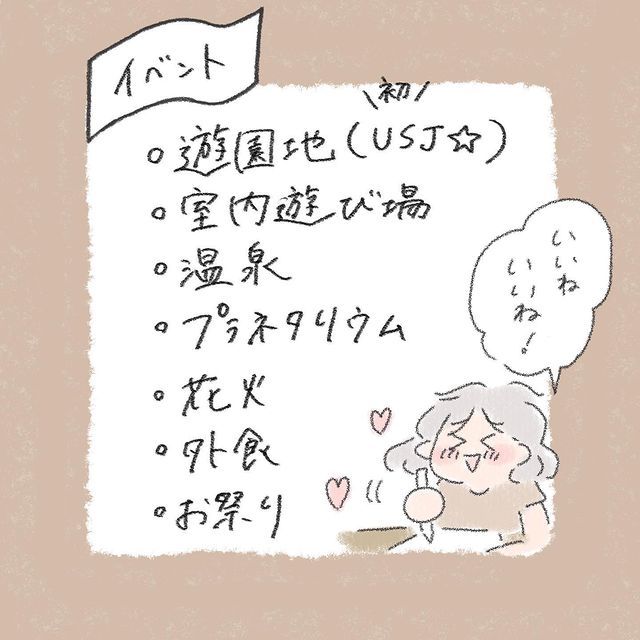 イベント
\初/
○遊園地(USJ☆)
○室内遊び場
○温泉
○プラネタリウム
○花火
○外食
○お祭り
いいね
いいね!